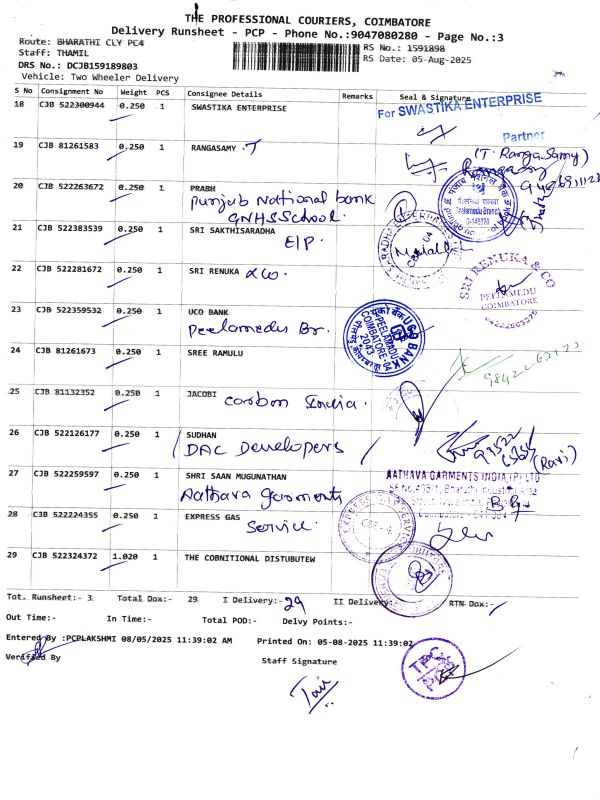 THE PROFESSIONAL COURIERS, COIMBATORE
Delivery Runsheet - PCP - Phone No.:9047080280 - Page No.:3
Route: BHARATHI CLY PC4
RS No.: 1591898
Staff: THAMIL
RS Date: 05-Aug-2025
DRS No.: DCJB159189803
Vehicle: Two Wheeler Delivery
S No Consignment No Weight PCS Consignee Details Remarks Seal & Signature
18 CJB 522300944 0.250 1 SWASTIKA ENTERPRISE
For SWASTIKA ENTERPRISE
Partner
19 CJB 81261583 0.250 1 RANGASAMY . T
(T. Ranga Samy)
20 CJB 522263672 0.250 1 PRABH
Punjab National bank
GNHSSchool.
Peelamedu Branch
21 CJB 522383539 0.250 1 SRI SAKTHISARADHA
E/P.
22 CJB 522281672 0.250 1 SRI RENUKA & co.
SRI RENUKA & CO
PEELAMEDU
COIMBATORE
23 CJB 522359532 0.250 1 UCO BANK
Peelamedu Br.
UCO BANK
PEELAMEDU
COIMBATORE-04
2043
24 CJB 81261673 0.250 1 SREE RAMULU
25 CJB 81132352 0.250 1 JACOBI
Carbon India.
26 CJB 522126177 0.250 1 SUDHAN
DAC Developers
(Ravi)
27 CJB 522259597 0.250 1 SHRI SAAN MUGUNATHAN
Aathava garments
AATHAVA GARMENTS INDIA (P) LTD
28 CJB 522224355 0.250 1 EXPRESS GAS
Service.
CBE - 4
29 CJB 522324372 1.020 1 THE COBNITIONAL DISTUBUTEW
Tot. Runsheet:- 3 Total Dox:- 29 I Delivery:- 29 II Delivery:- RTN Dox:-
Out Time:- In Time:- Total POD:- Delvy Points:-
Entered By :PCPLAKSHMI 08/05/2025 11:39:02 AM Printed On: 05-08-2025 11:39:02
Verified By Staff Signature